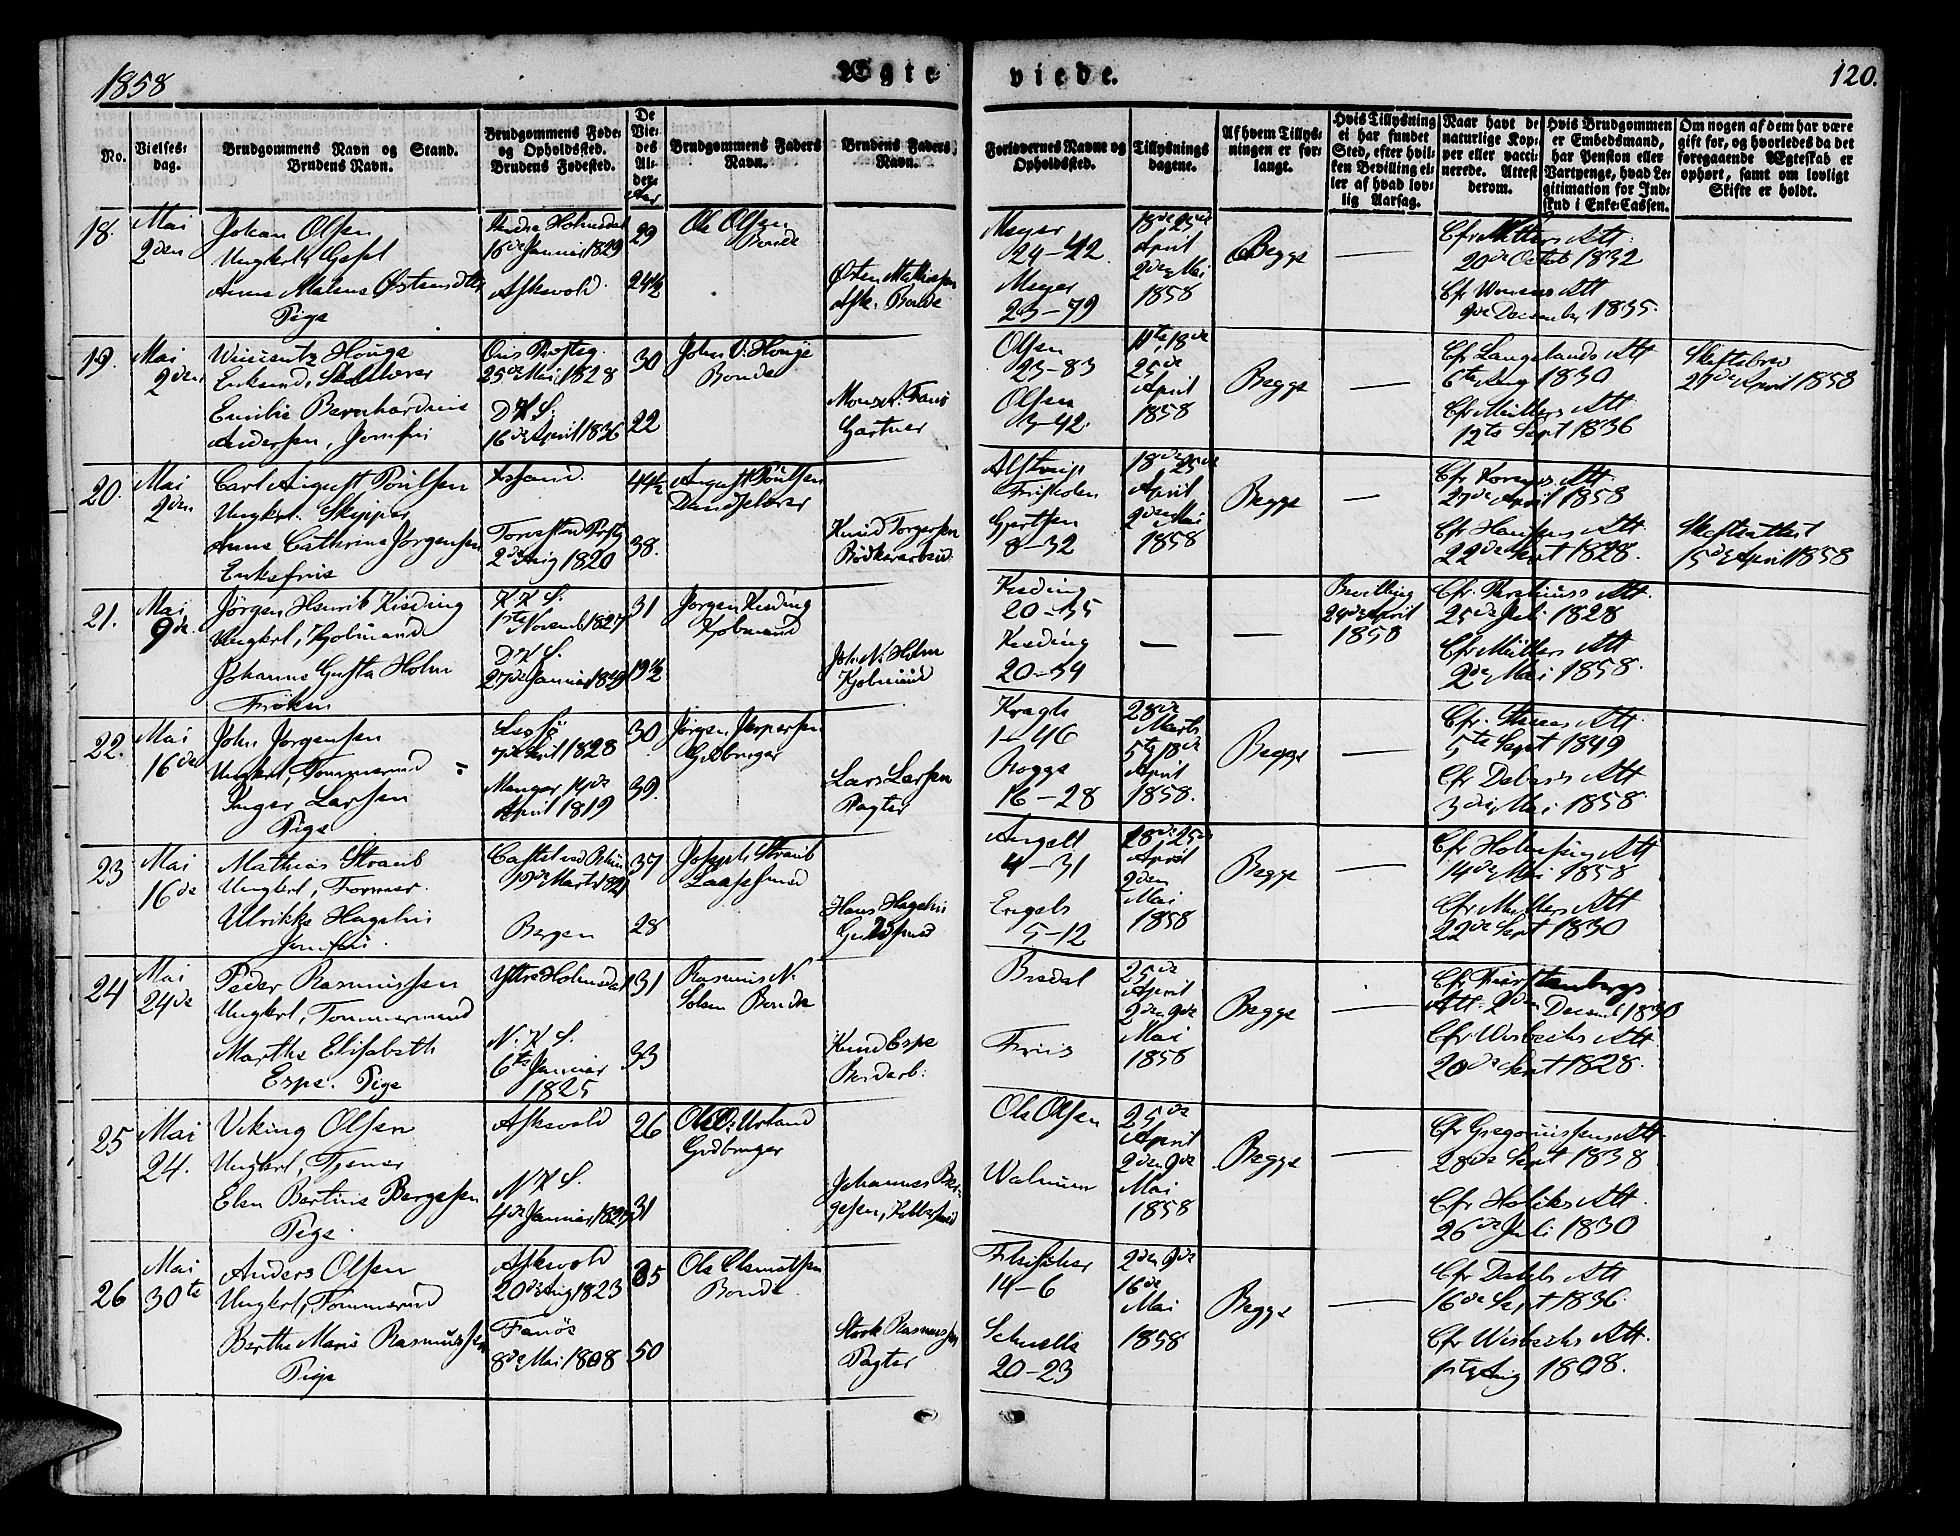 1858
Ægte
viede.
120.
No.
Vielses-
dag.
Brudgommens Navn og Stand.
Brudens Navn.
Brudgommens Føde-
og Opholdssted.
Brudens Fødested.
De
Vie-
des
Al-
der.
Aar
Brudgommens Faders
Navn.
Brudens Faders
Navn.
Forlovernes Navne og
Opholdssted.
Tillysnings
dagene.
Af hvem Tillys-
ningen er for-
langt.
Hvis Tillysning
ei har fundet
Sted, efter hvil-
ken Bevilling el-
ler af hvad lov-
lig Aarsag.
Naar havt de
naturlige Kop-
per eller vacci-
nerede. Attest
derom.
Hvis Brudgommen
er Embedsmand,
har Pension eller
Vartpenge, hvad Le-
gitimation for Ind-
skud i Enke-Cassen.
Om nogen af dem har være
gift før, og hvorledes da det
foregaaende Ægteskab er
ophørt, samt om lovligt
Skifte er holdt.
18.
Mai
2den
Johan Olsen
Ungkarl,
Anne Malene
Pige
Holmedal
16de Januar 1829
Askevold
29
24½
Ole Olsen
Bonde
Østen Mathiesen
Ask. Bonde
Meyer
29-42.
Meyer
23-79
18de 25de
April
2den Mai
1858
Begge
—
Cfr Müllers Att.
20de Octob 1832
Cfr Att
9de December 1835.
19.
Mai
2den
Houge
Enkemd,
Emilie Bernhardine
Andersen, Jomfru
25de Mai 1828
D. K. S.
16de April 1836
30
22
John V. Houge
Bonde
Gartner
Olsen
23-83
Olsen
3-42.
11te, 18de
25de
April
1858
Begge
—
Cfr Langelands Att
6te Aug 1830
Cfr Müllers Att
12te Sept 1836
Skiftebrev
27de April 1858
20.
Mai
2den
Carl August Poulsen
Ungkrl. Skipper
Anne Cathrine Jørgensen
Enkefrue
Torvestad Præstg
2de Aug 1820
44½
38.
August Poulsen
Dandselærer
Knud Torgersen
Bødkerarbeid.
Alstrup
Gjertsen
8-32
18de 25de
April
2den Mai
1858
Begge
—
Cfr Att.
27de April 1858
Cfr Hansens Att
22de Sept 1828.
Skifteattest
15de April 1858
21.
Mai
9de
Jørgen Henrik Kieding
Ungkrl, Kjøbmand
Johanne Gusta Holm
Frøken
K. K. S.
1ste Novemb 1827
D K S.
27de Januar 1839
31
19½
Jørgen Kieding
Kjøbmand
Joh. N. Holm
Kjøbmand
Kieding
20-35
Kieding
20-34
—
—
Bevilling
24de April
1858
Cfr. Att.
25de Juli 1828
Cfr Müllers Att
2de Mai 1858.
22.
Mai
16de
John Jørgensen
Ungkrl, Tømmermd
Inger Larsen
Pige
7de April 1828
Manger, 14de
April 1819
30
39.
Jørgen Jespersen
Gdbruger
Lars Larsen
Pagter
Kragh
1-46
Rogge
16-28
28de
Marts
5te 18de
April
1858.
Begge
—
Cfr. Att
5te Sept 1849
Cfr Debess Att
3die Mai 1858
23
Mai
16de
Mathias Straub
Ungkrl, Former.
Ulrikke Hagelin
Jomfru.
Bergen
37
28
Joseph Straub
Laassesmed
Hans Hagelin
Guldsmed
Angell
4-31
Engels
5-12
18de 25de
April
2den
Mai
1858
Begge
—
Cfr Att
14de Mai 1858
Cfr Müllers Att
22de Sept 1830
24
Mai
24de
Peder Rasmussen
Ungkrl, Tømmermand
Marthe Elisabeth
Espe. Pige
Yttre Holmedal
N. K S.
6te Januar
1825
31
33
Rasmus N.
Solem Bonde
Knud Espe
Bredal
Friis
25de
April
2den 9de
Mai
1858
Begge
—
Cfr Fürstenbergs
Att. 2den Decemb 1830
Cfr Wisbechs Att
20de Sept 1828.
25
Mai
24.
Viking Olsen
Ungkrl, Tjener
Elen Bertine Bergesen
Pige
Askevold
N K S.
4de Januar 1827
26
31
Ole O. Urland
Gdbruger
Johannes Ber-
gesen, Kobbersmed
Ole Olsen
Walnum
25de
April
2den 9de
Mai
1858
Begge
—
Cfr Gregoriussens Att
28de Sept 1838
Cfr Holichs Att
26de Juli 1830
26
Mai
30te
Anders Olsen
Ungkrl, Tømmermd
Berthe Marie Rasmussen
Pige
Askevold
20de Aug 1823
Fanøe
8de Mai 1808
35
50
Ole Clemetsen
Bonde
Stork Rasmussen
Pagter
14-6
Schnelle
20-23
2den 9de
16de
Mai
1858
Begge
—
Cfr Dahls Att
16de Sept 1836.
Cfr Wisbechs Att.
1ste Aug 1808.